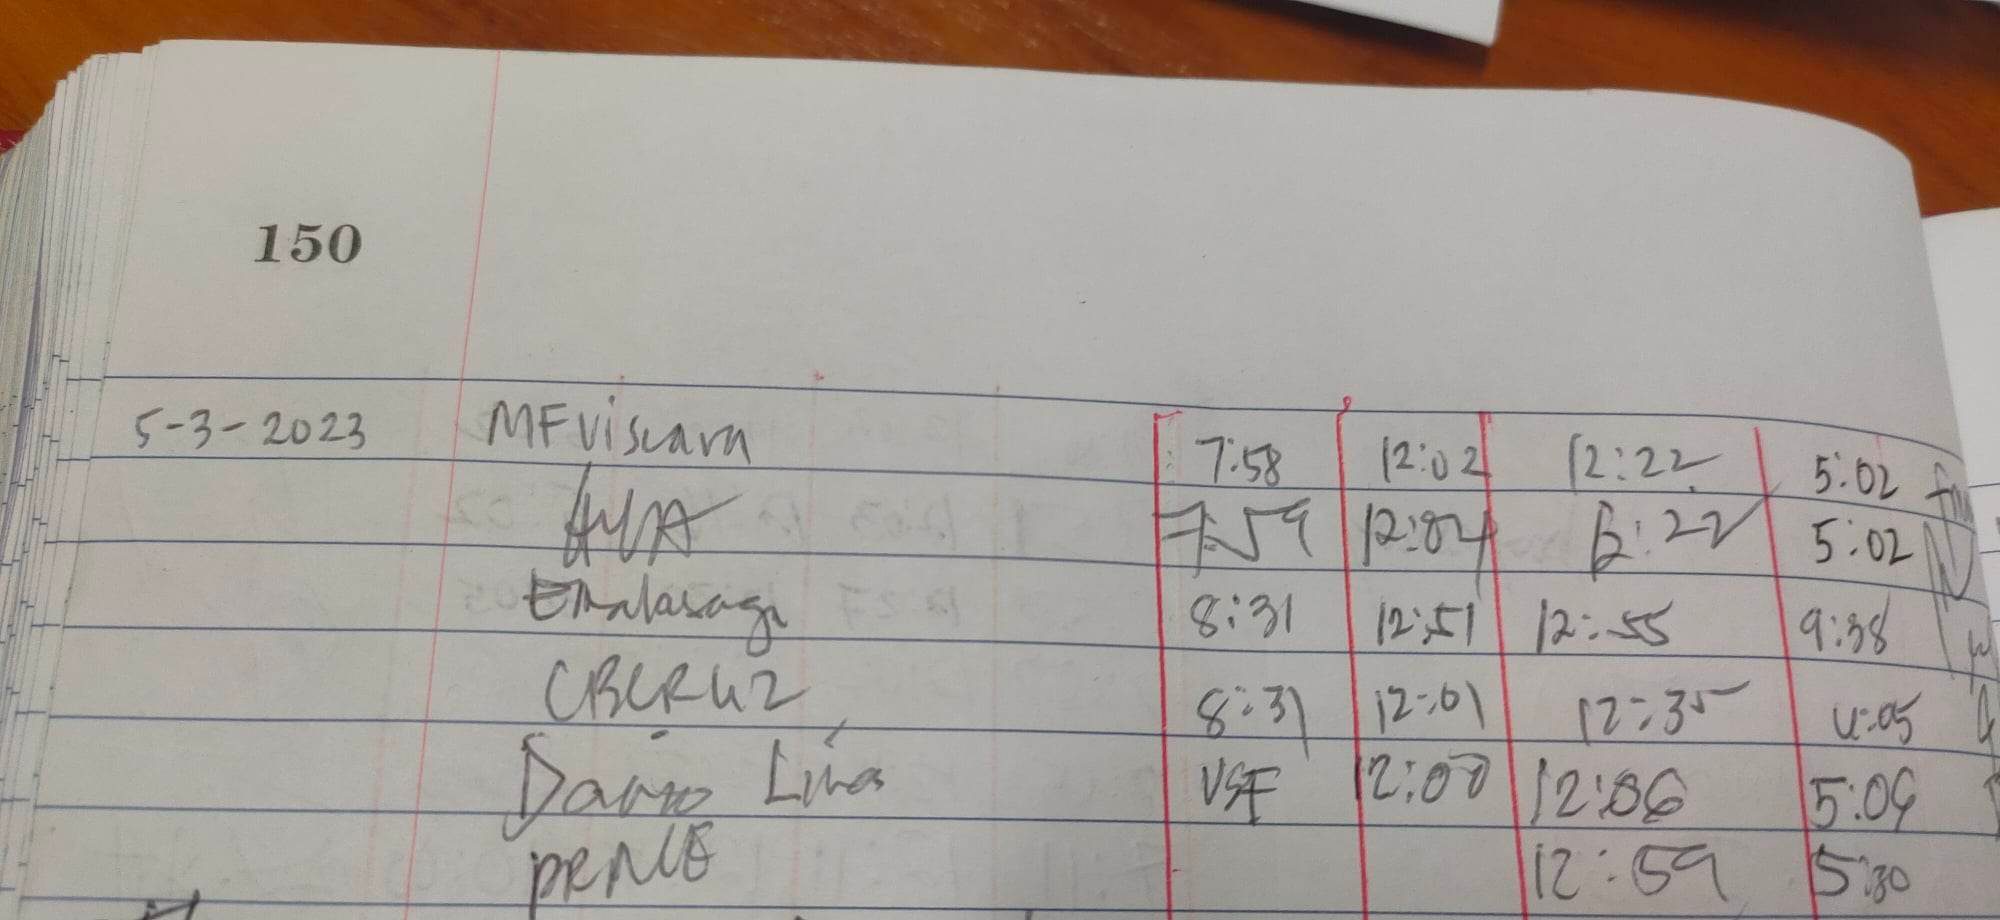 150
5-3-2023 MFViscarra 7:58 12:02 12:22 5:02
7:59 12:04 12:22 5:02
8:31 12:51 12:55 9:38
CBCRUZ 8:31 12:01 12:35 4:05
Dario Linas VSF 12:00 12:06 5:09
PRNCE 12:59 5:30